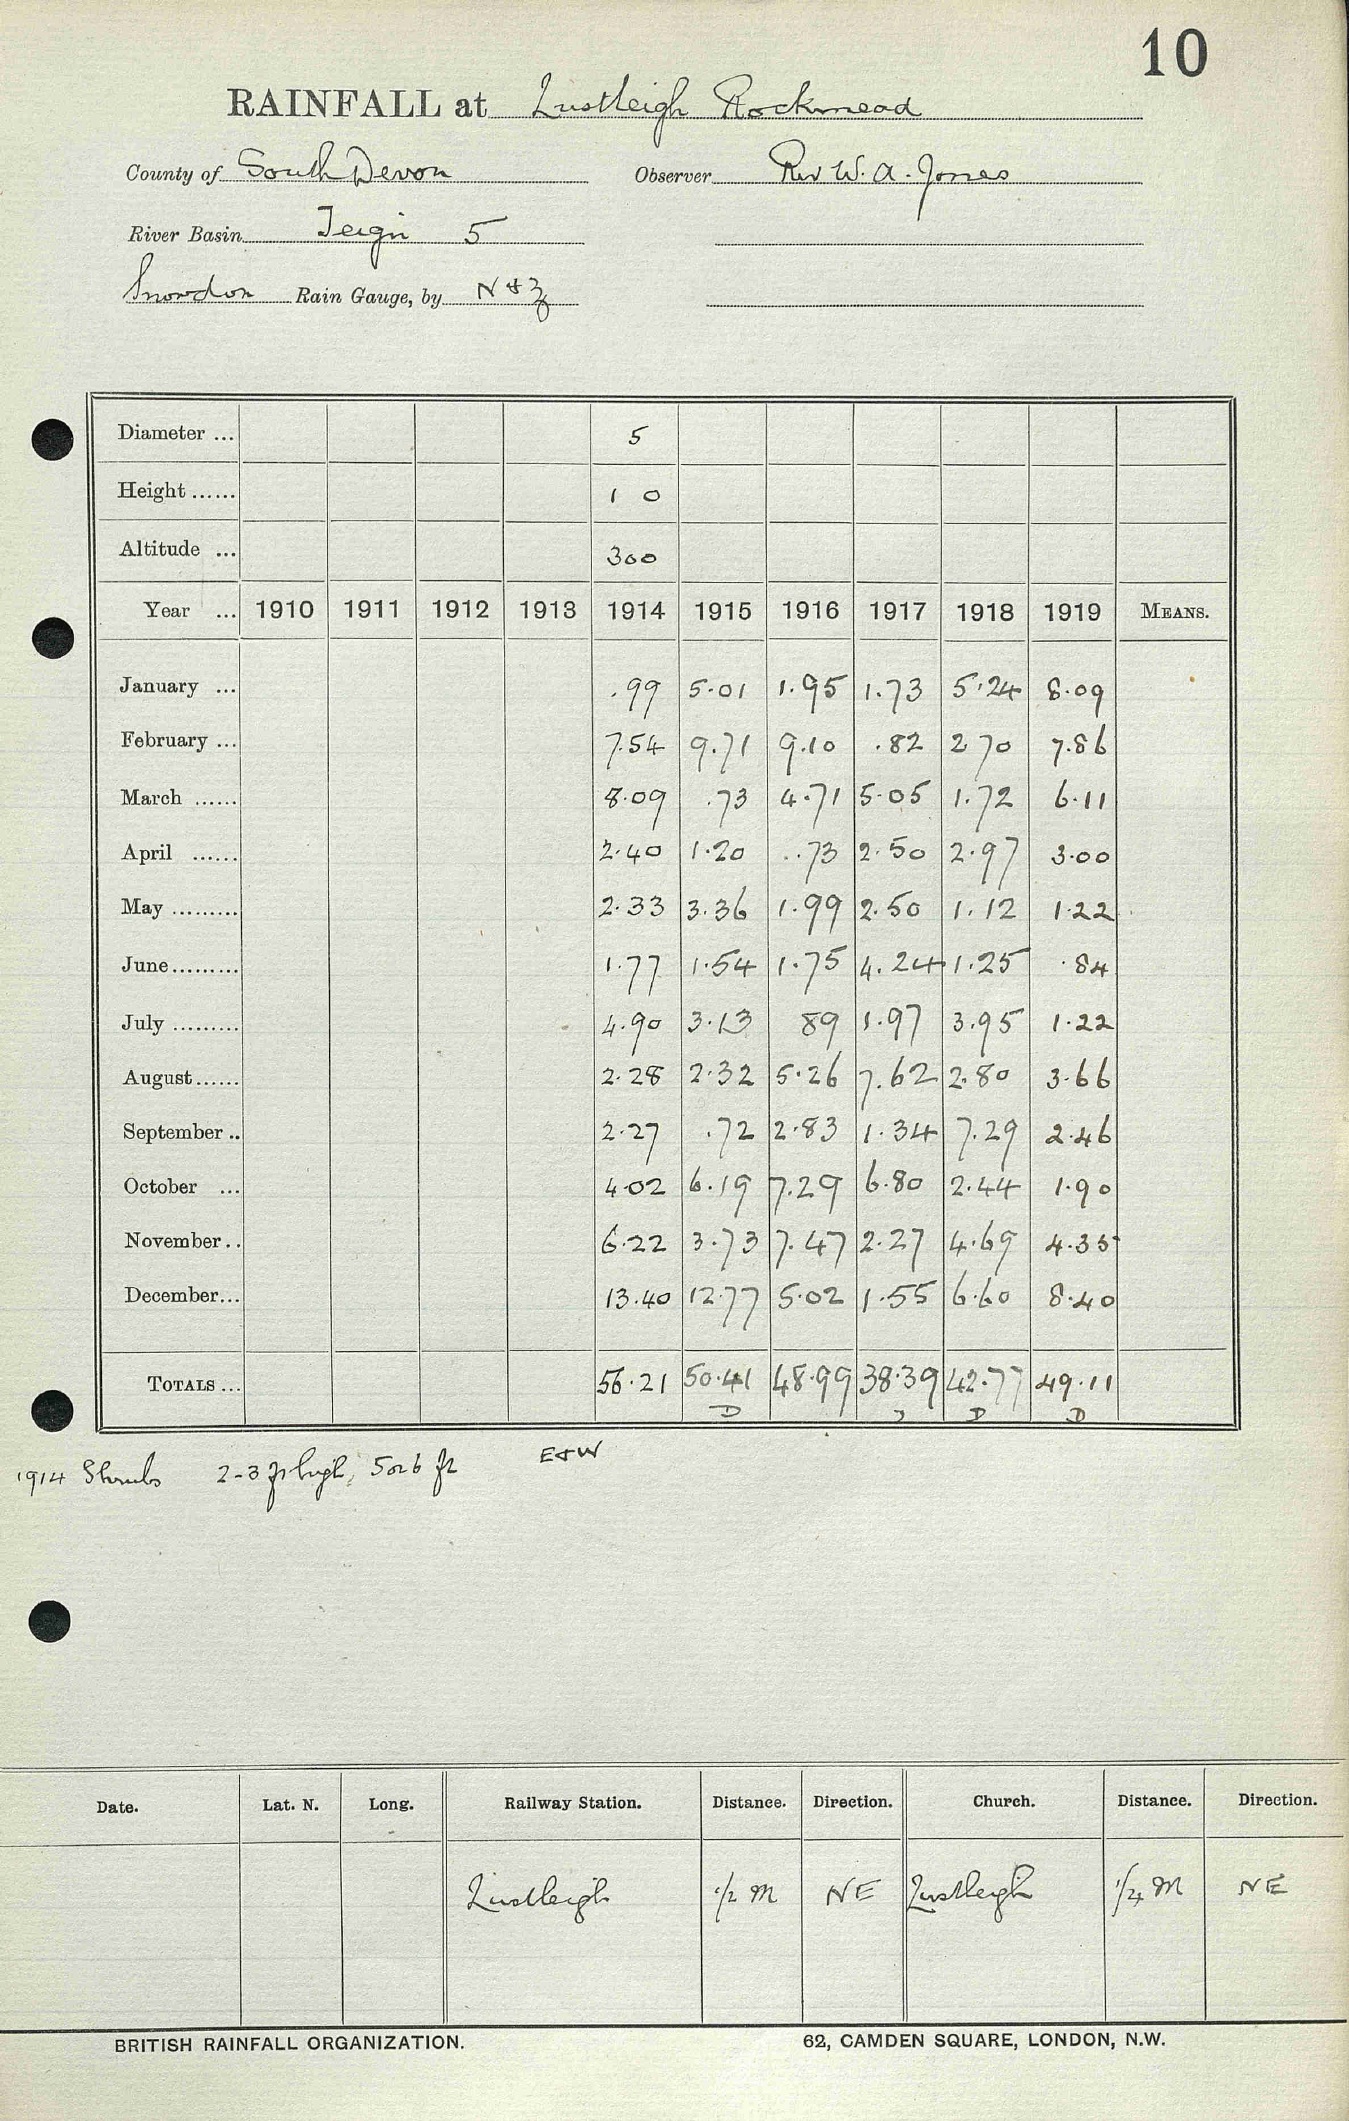 10
RAINFALL at Lustleigh Rockmead
County of South Devon Observer Rev W. A. Jones
River Basin Teign 5
Snowdon Rain Gauge, by N & Z
Diameter ... 5
Height ...... 1 0
Altitude ... 300
Year ... 1910 1911 1912 1913 1914 1915 1916 1917 1918 1919 MEANS.
January ... .99 5.01 1.95 1.73 5.24 8.09
February ... 7.54 9.71 9.10 .82 2 70 7.86
March ...... 8.09 .73 4.71 5.05 1.72 6.11
April ...... 2.40 1.20 .73 2.50 2.97 3.00
May ......... 2.33 3.36 1.99 2.50 1.12 1.22
June......... 1.77 1.54 1.75 4.24 1.25 .84
July ......... 4.90 3.13 89 1.97 3.95 1.22
August...... 2.28 2.32 5.26 7.62 2.80 3.66
September .. 2.27 .72 2.83 1.34 7.29 2.46
October ... 4.02 6.19 7.29 6.80 2.44 1.90
November.. 6.22 3.73 7.47 2.27 4.69 4.35
December... 13.40 12.77 5.02 1.55 6.60 8.40
TOTALS ... 56.21 50.41 48.99 38.39 42.77 49.11
D D D
1914 Shrubs 2-3 ft high, 5 or 6 ft E & W
Date. Lat. N. Long. Railway Station. Distance. Direction. Church. Distance. Direction.
Lustleigh 1/2 M NE Lustleigh 1/4 M NE
BRITISH RAINFALL ORGANIZATION. 62, CAMDEN SQUARE, LONDON, N.W.